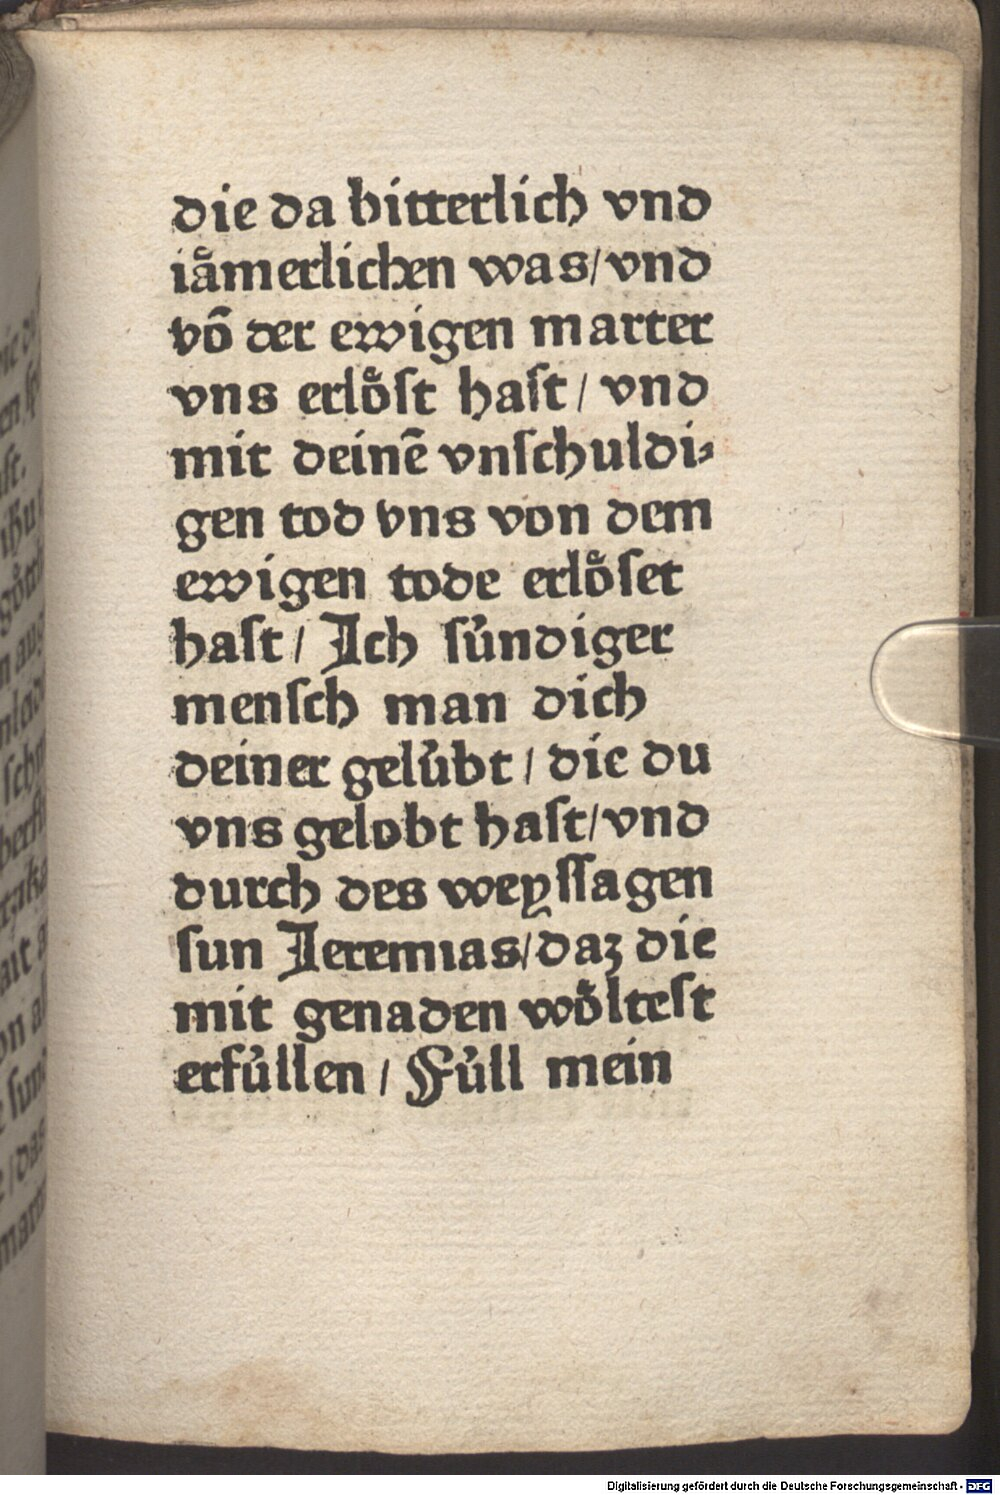 die da bitterlich vnd
iaͤmerlichen was/vnd
võ der ewigen marter
vns erloͤſt haſt/ vnd
mit deinẽ vnſchuldi⸗
gen tod vns von dem
ewigen tode erloͤſet
haſt/ Ich ſuͤndiger
menſch man dich
deiner geluͤbt/ die du
vns gelobt haſt/vnd
durch des weyſſagen
ſun Ieremias/daz die
mit genaden woͤlteſt
erfuͤllen/ Fuͤll mein
Digitalisierung gefördert durch die Deutsche Forschungsgemeinschaft - DFG